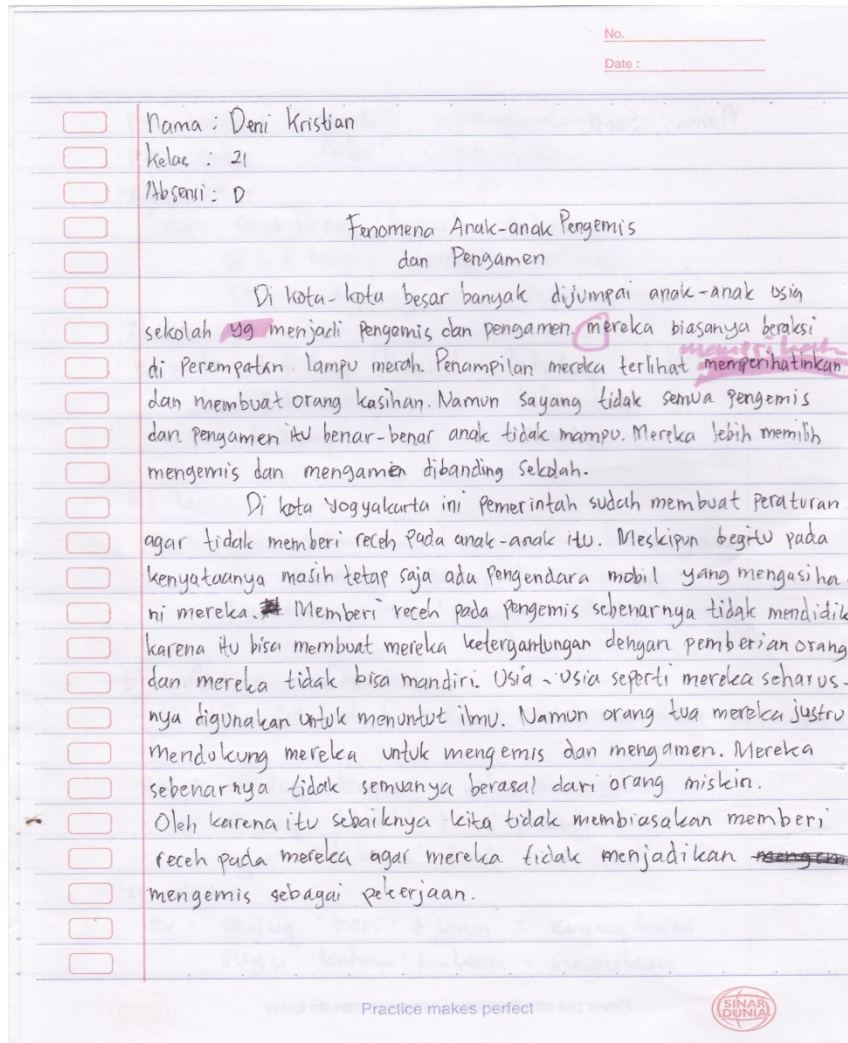 No.
Date :
Nama : Deni Kristian
Kelas : 21
Absensi : D
Fenomena Anak-anak Pengemis
dan Pengamen
Di kota-kota besar banyak dijumpai anak-anak usia
sekolah yg menjadi pengemis dan pengamen. mereka biasanya beraksi
di Perempatan lampu merah. Penampilan mereka terlihat memperihatinkan
dan membuat orang kasihan. Namun sayang tidak semua pengemis
dan pengamen itu benar-benar anak tidak mampu. Mereka lebih memilih
mengemis dan mengamen dibanding sekolah.
Di kota Yogyakarta ini pemerintah sudah membuat peraturan
agar tidak memberi receh pada anak-anak itu. Meskipun begitu pada
kenyataanya masih tetap saja ada pengendara mobil yang mengasiha-
ni mereka. Memberi receh pada pengemis sebenarnya tidak mendidik
karena itu bisa membuat mereka ketergantungan dengan pemberian orang
dan mereka tidak bisa mandiri. Usia-usia seperti mereka seharus-
nya digunakan untuk menuntut ilmu. Namun orang tua mereka justru
mendukung mereka untuk mengemis dan mengamen. Mereka
sebenarnya tidak semuanya berasal dari orang miskin.
Oleh karena itu sebaiknya kita tidak membiasakan memberi
receh pada mereka agar mereka tidak menjadikan
mengemis sebagai pekerjaan.
Practice makes perfect
SINAR DUNIA